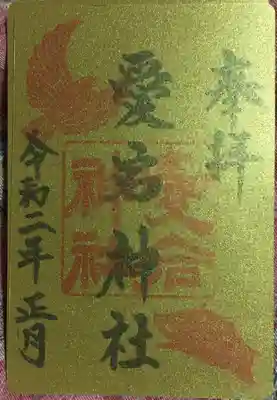 奉拝
愛宕神社
令和二年 正月